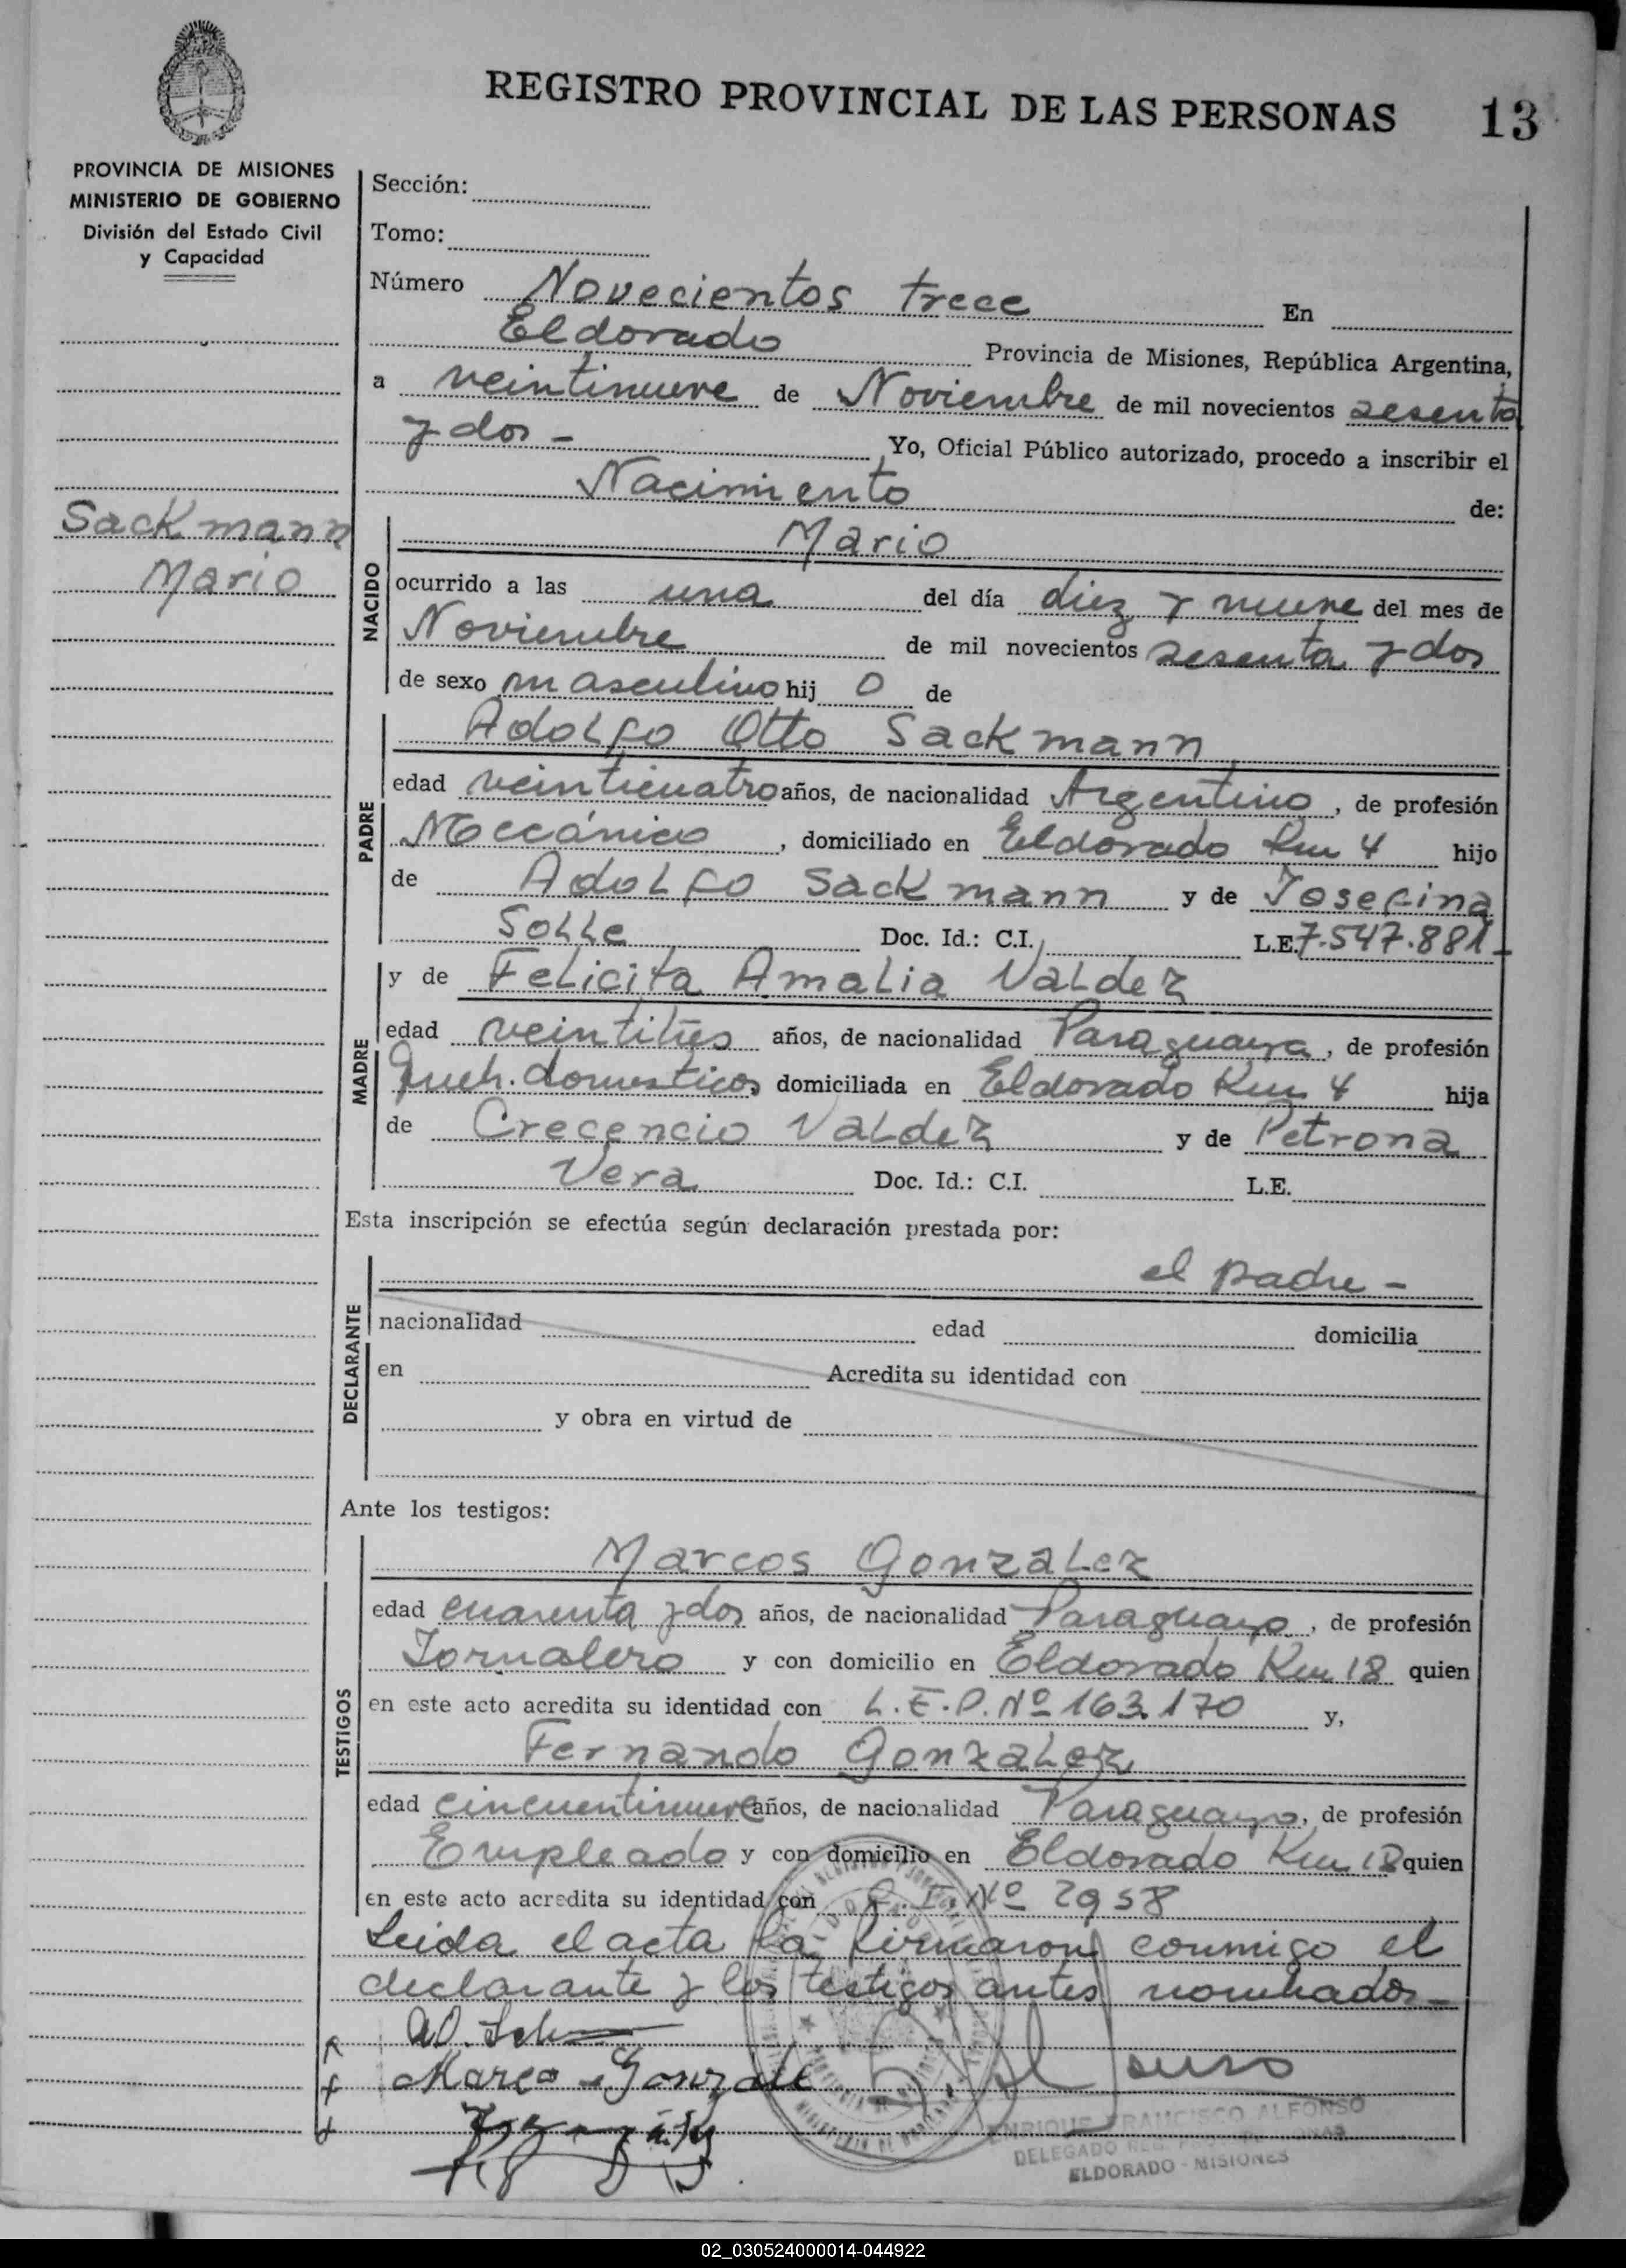 REGISTRO PROVINCIAL DE LAS PERSONAS 13
PROVINCIA DE MISIONES
MINISTERIO DE GOBIERNO
División del Estado Civil
y Capacidad
Sackmann
Mario
Sección:
Tomo:
Número Novecientos trece En
Eldorado Provincia de Misiones, República Argentina,
a veintinueve de Noviembre de mil novecientos sesenta
y dos - Yo, Oficial Público autorizado, procedo a inscribir el
Nacimiento de:
NACIDO
Mario
ocurrido a las una del día diez y nueve del mes de
Noviembre de mil novecientos sesenta y dos
de sexo masculino hij o de
PADRE
Adolfo Otto Sackmann
edad veinticuatro años, de nacionalidad Argentino, de profesión
Mecánico, domiciliado en Eldorado Km 4 hijo
de Adolfo Sackmann y de Josefina
Solle Doc. Id.: C.I. L.E. 7.547.881-
MADRE
y de Felicita Amalia Valdez
edad veintitres años, de nacionalidad Paraguaya, de profesión
Queh. domesticos domiciliada en Eldorado Km 4 hija
de Crecencio Valdez y de Petrona
Vera Doc. Id.: C.I. L.E.
Esta inscripción se efectúa según declaración prestada por:
DECLARANTE
el padre -
nacionalidad edad domicilia
en Acredita su identidad con
y obra en virtud de
Ante los testigos:
TESTIGOS
Marcos Gonzalez
edad cuarenta y dos años, de nacionalidad Paraguayo, de profesión
Jornalero y con domicilio en Eldorado Km 18 quien
en este acto acredita su identidad con L.E.P. Nº 163.170 y,
Fernando Gonzalez
edad cincuentinueve años, de nacionalidad Paraguayo, de profesión
Empleado y con domicilio en Eldorado Km 18 quien
en este acto acredita su identidad con C.I. Nº 2958
Leida el acta la firmaron conmigo el
declarante y los testigos antes nombrados-
ENRIQUE FRANCISCO ALFONSO
DELEGADO
ELDORADO - MISIONES
02_030524000014-044922